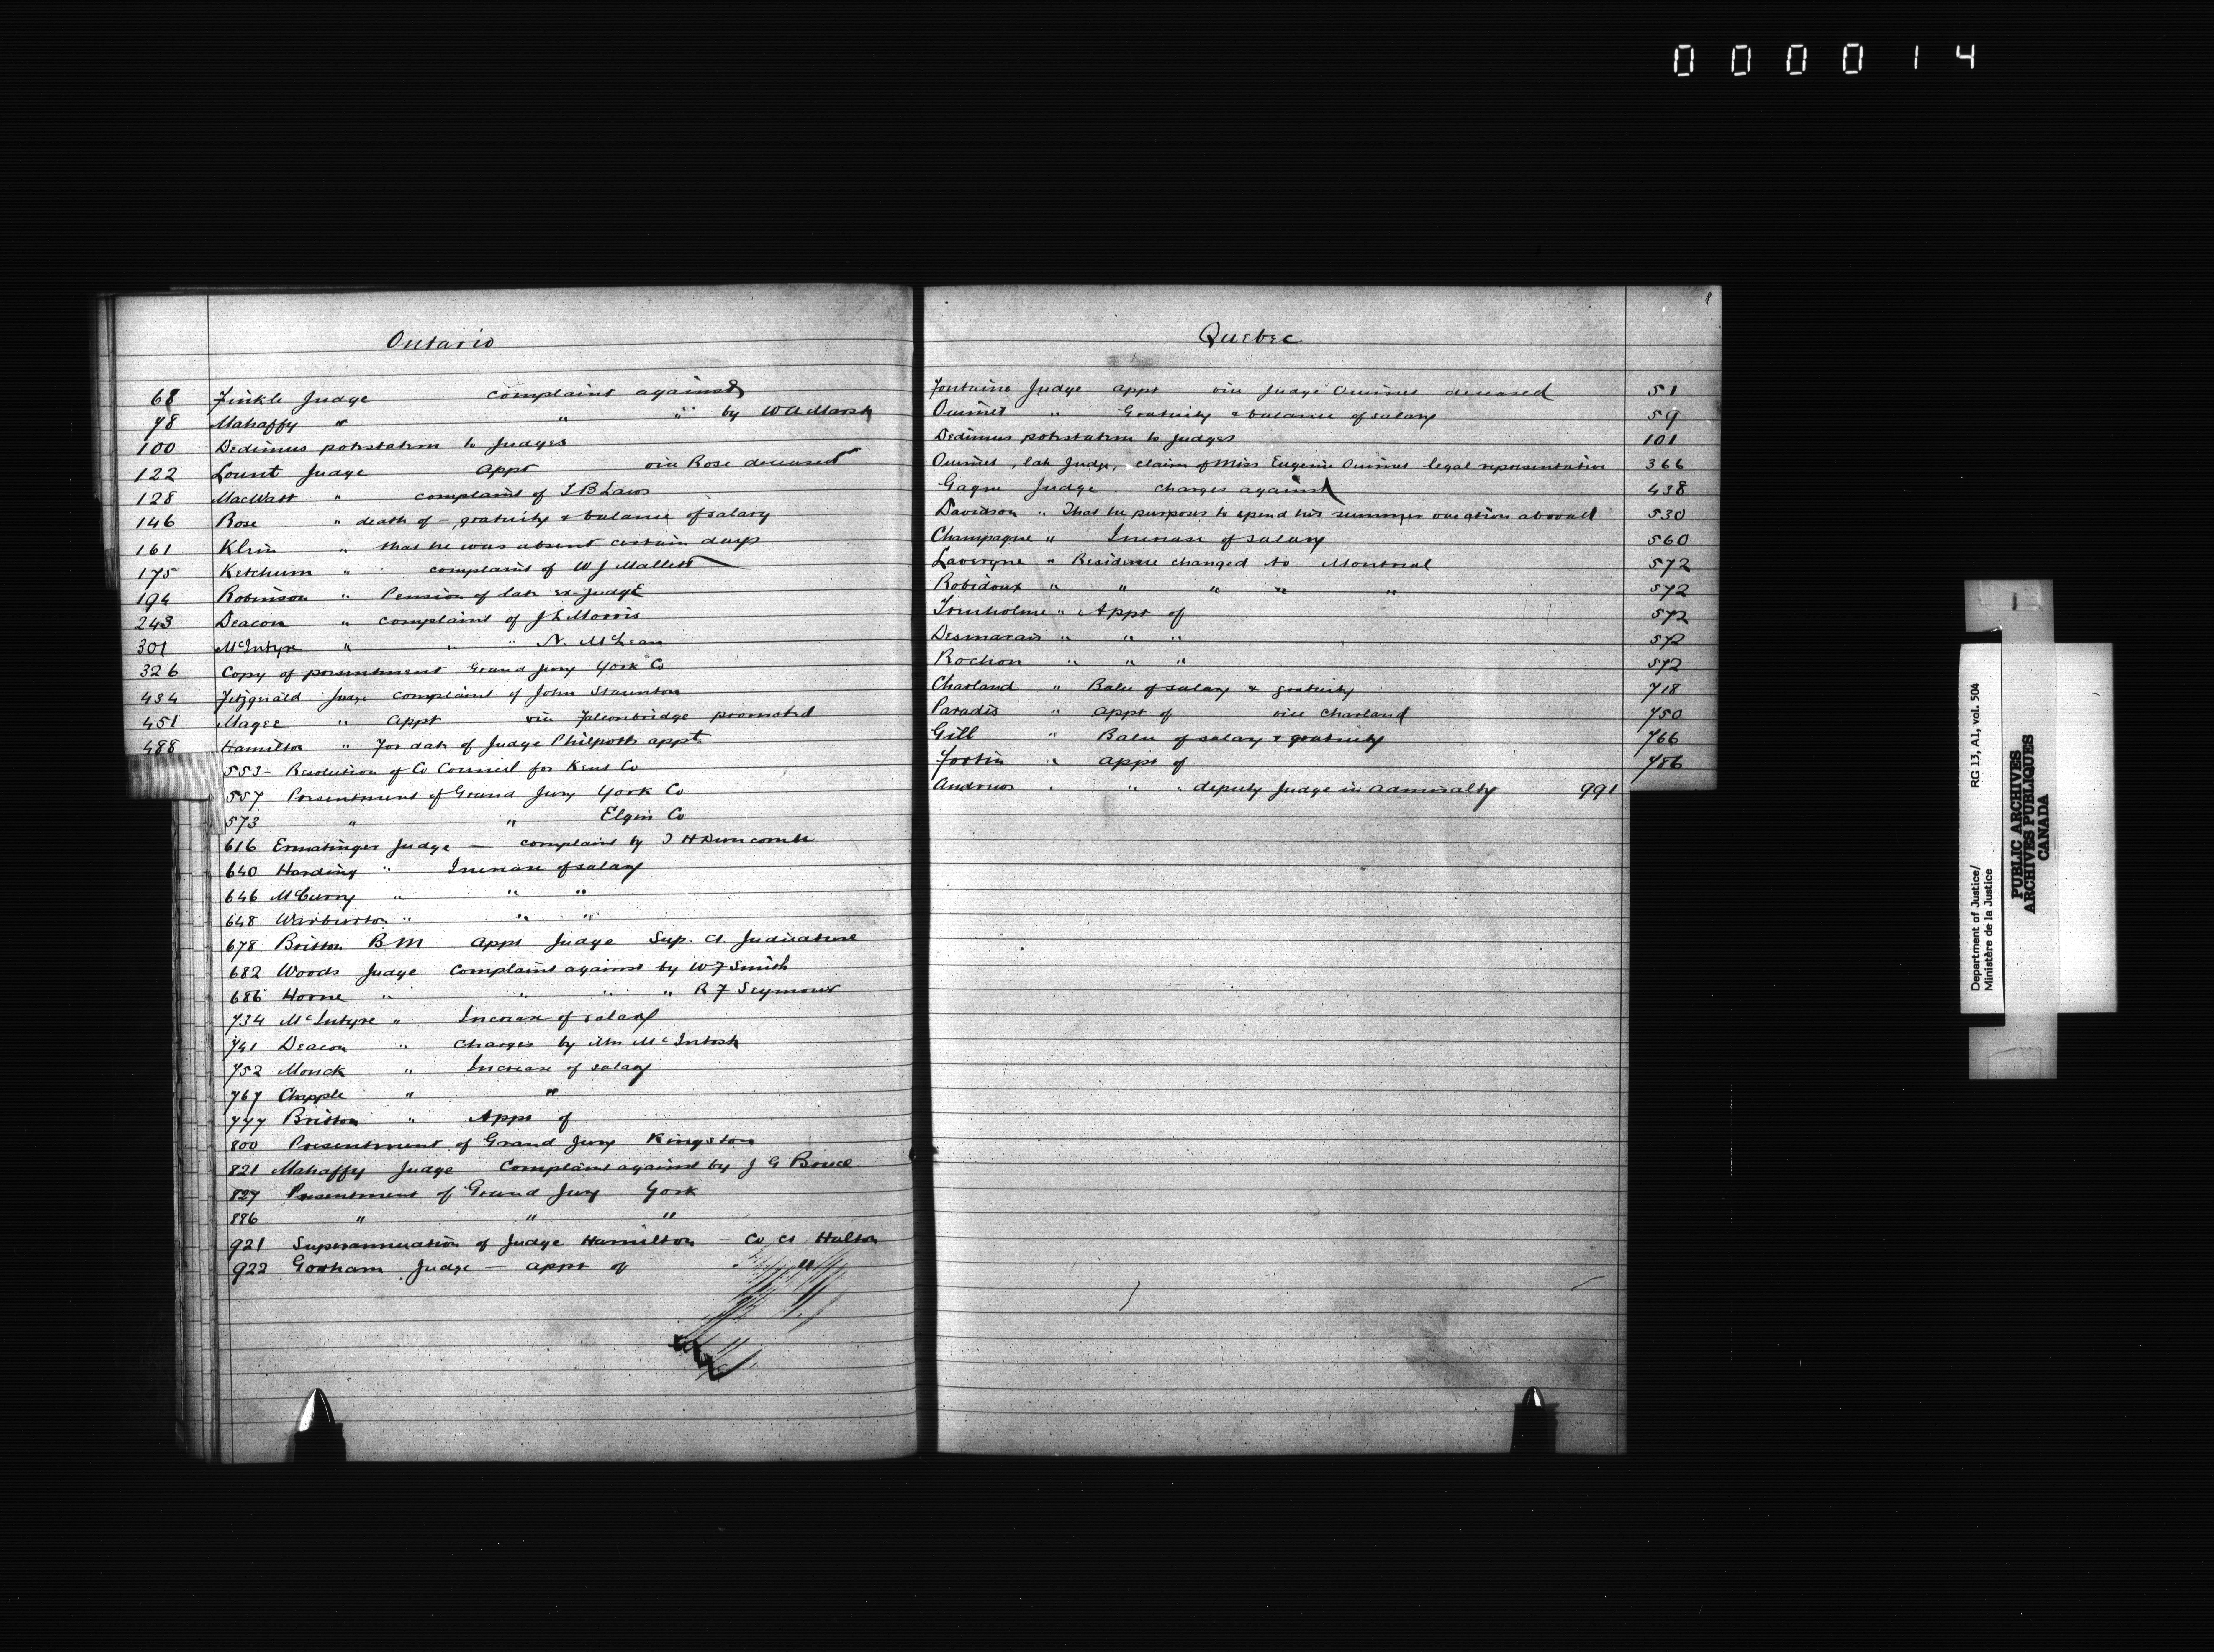 000014
Ontario
68 Finkle Judge complaint against
78 Mahaffy " " " by W A Marsh
100 Dedimus potestatem to Judges
122 Lount Judge Appt vice Rose deceased
128 MacWatt " complaint of T B Laws
146 Rose " death of - gratuity & balance of salary
161 Klein " that he was absent certain days
175 Ketchum " complaint of W J Mallett
194 Robinson " Pension of late ex-judge
243 Deacon " complaint of J L Morris
301 McIntyre " " " N. McLean
326 Copy of presentment Grand Jury York Co
434 Fitzgerald Judge complaint of John Staunton
451 Magee " Appt vice Falconbridge promoted
488 Hamilton " For date of Judge Philpotts appt
553 - Resolution of Co Council for Kent Co
557 Presentment of Grand Jury York Co
573 " " Elgin Co
616 Ermatinger Judge - complaint by T H Duncombe
640 Harding " Increase of salary
646 McCurry " " "
648 Warburton " " "
678 Britton B M Appt Judge Sup. Ct Judicature
682 Woods Judge Complaint against by W F Smith
686 Horne " " " " R F Seymour
734 McIntyre " Increase of salary
741 Deacon " Charges by Mrs McIntosh
752 Monck " Increase of salary
767 Chapple " "
777 Britton " Appt of
800 Presentment of Grand Jury Kingston
821 Mahaffy Judge Complaint against by J G Bruce
827 Presentment of Grand Jury York
886 " " "
921 Superannuation of Judge Hamilton - Co Ct Halton
922 Gorham Judge - appt of "
Quebec
Fontaine Judge appt - vice Judge Ouimet deceased 51
Ouimet " Gratuity & balance of salary 59
Dedimus potestatem to Judges 101
Ouimet, late Judge, claim of Miss Eugenie Ouimet legal representative 366
Gagne Judge charges against 438
Davidson " That he purposes to spend his summer vacation abroad 530
Champagne " Increase of salary 560
Lavergne " Residence changed to Montreal 572
Robidoux " " " " " 572
Trenholme " Appt of 572
Desmarais " " " 572
Rochon " " " 572
Charland " Balce of salary & gratuity 718
Paradis " appt of vice Charland 750
Gill " Balce of salary & gratuity 766
Fortin " appt of 786
Andrews " " " deputy Judge in Admiralty 991
Department of Justice/
Ministère de la Justice
RG 13, A1, vol. 504
PUBLIC ARCHIVES
ARCHIVES PUBLIQUES
CANADA